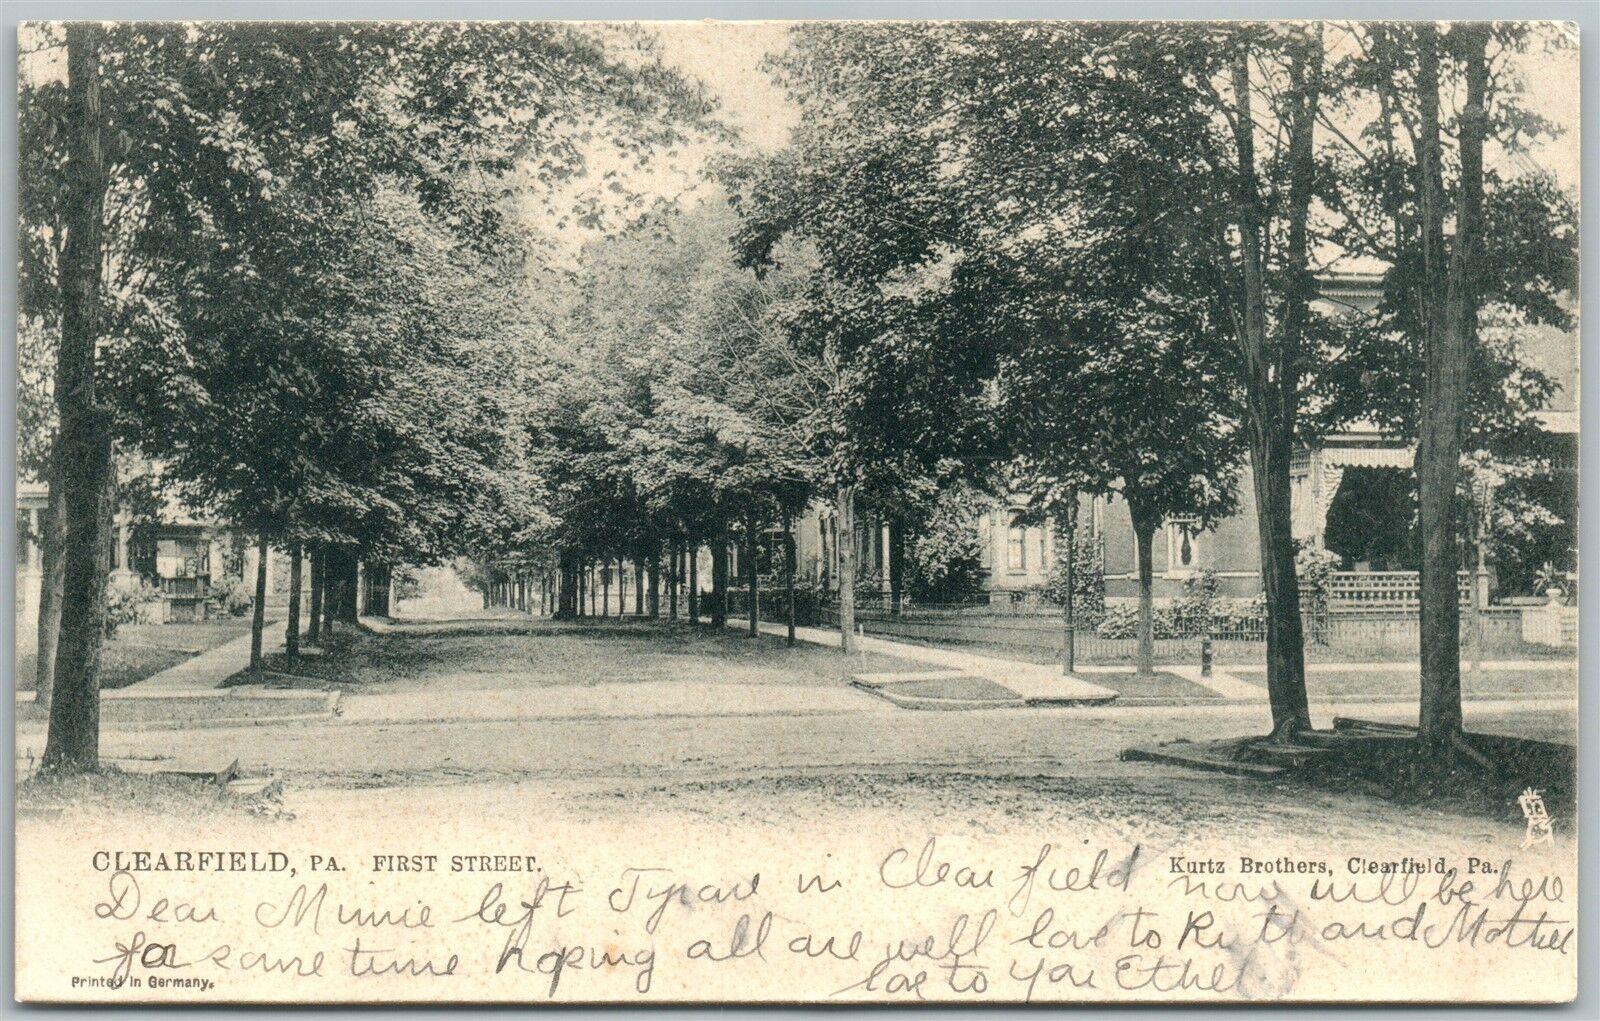 CLEARFIELD, PA. FIRST STREET.
Kurtz Brothers, Clearfield, Pa.
Dear Minnie left Tyrone in Clearfield now will be here
for some time hoping all are well love to Ruth and Mother
love to you Ethel
Printed in Germany.